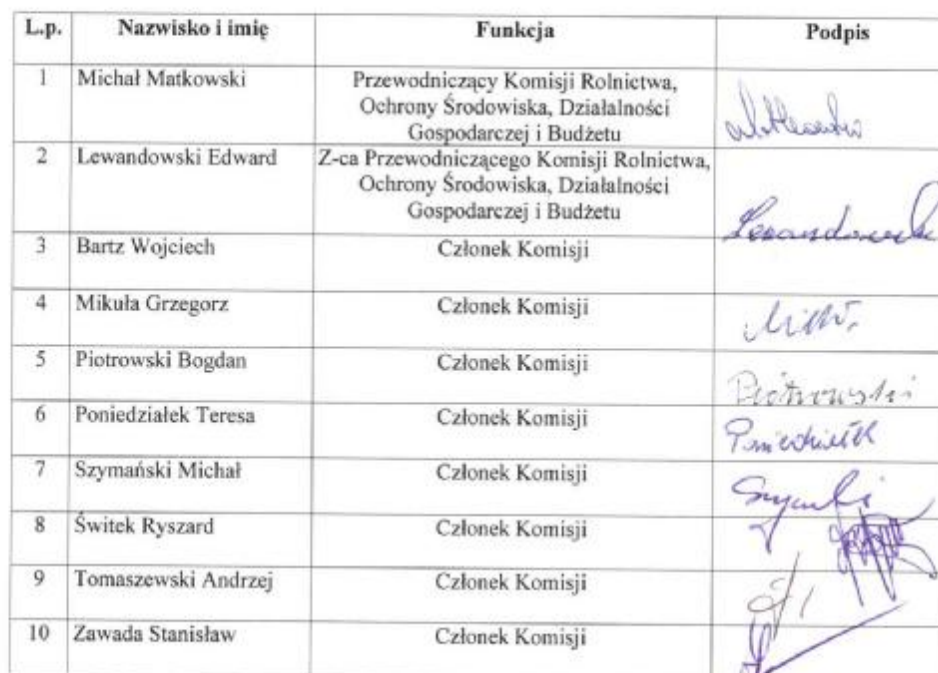 L.p. Nazwisko i imię Funkcja Podpis
1 Michał Matkowski Przewodniczący Komisji Rolnictwa,
Ochrony Środowiska, Działalności
Gospodarczej i Budżetu
2 Lewandowski Edward Z-ca Przewodniczącego Komisji Rolnictwa,
Ochrony Środowiska, Działalności
Gospodarczej i Budżetu
Lewandowski
3 Bartz Wojciech Członek Komisji
4 Mikuła Grzegorz Członek Komisji
5 Piotrowski Bogdan Członek Komisji
Piotrowski
6 Poniedziałek Teresa Członek Komisji
Poniedziałek
7 Szymański Michał Członek Komisji
8 Świtek Ryszard Członek Komisji
9 Tomaszewski Andrzej Członek Komisji
10 Zawada Stanisław Członek Komisji